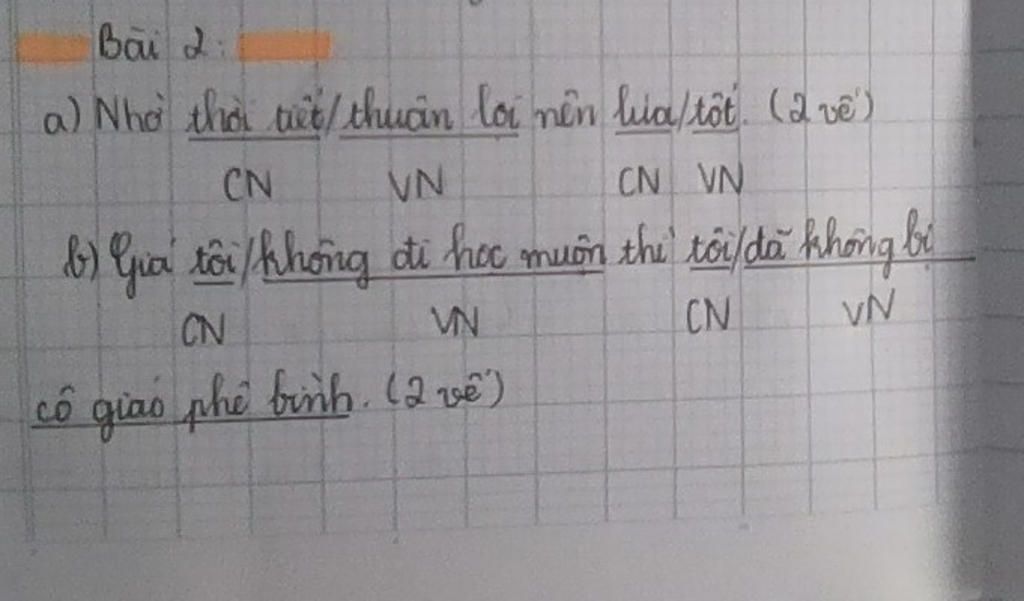 Bài 2:
a) Nhờ thời tiết/thuận lợi nên lúa/tốt. (2 vế)
CN VN CN VN
b) Giá tôi/không đi học muộn thì tôi/đã không bị
CN VN CN VN
cô giáo phê bình. (2 vế)